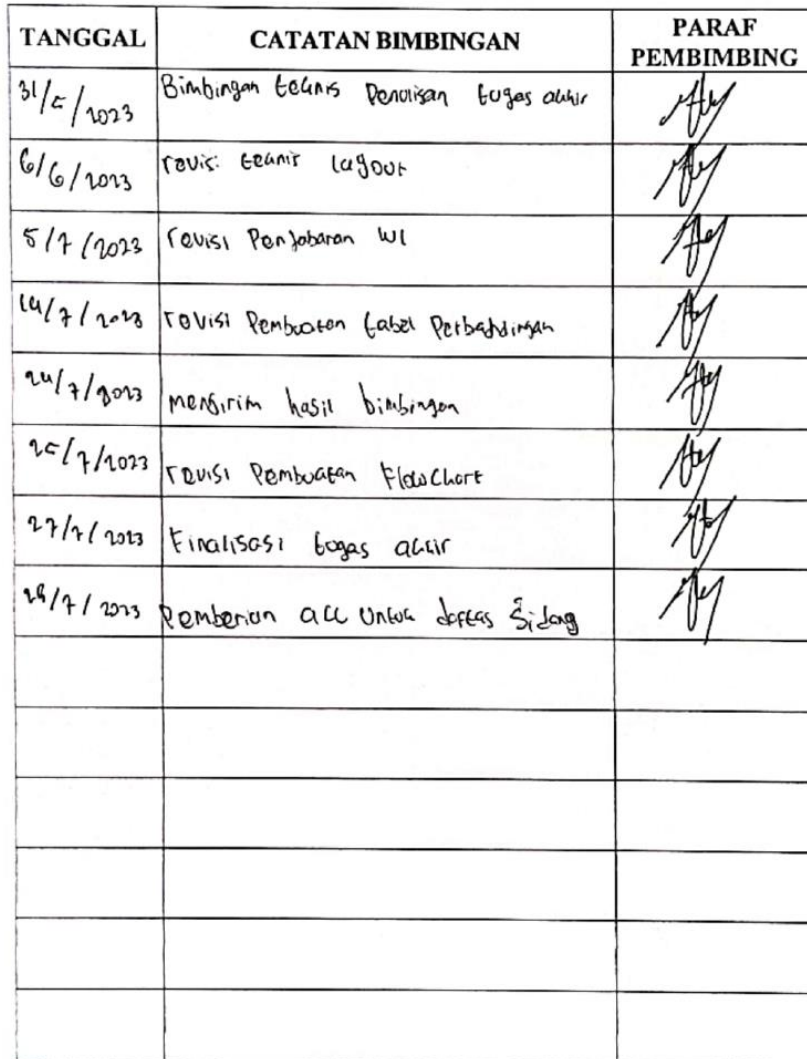 TANGGAL CATATAN BIMBINGAN PARAF PEMBIMBING
31/5/2023 Bimbingan teknis Penulisan tugas akhir
6/6/2023 revisi teknis layout
5/7/2023 revisi Penjabaran WI
14/7/2023 revisi Pembuatan tabel Perbandingan
24/7/2023 mengirim hasil bimbingan
25/7/2023 revisi Pembuatan FlowChart
27/7/2023 Finalisasi tugas akhir
28/7/2023 Pemberian acc untuk daftar Sidang